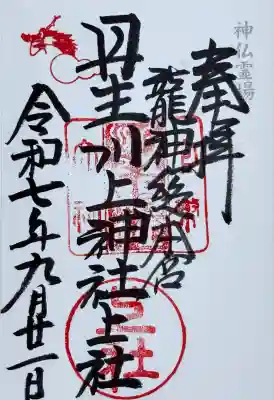 神仏霊場
奉拝
龍神総本宮
丹生川上神社上社
令和七年九月廿一日
上社